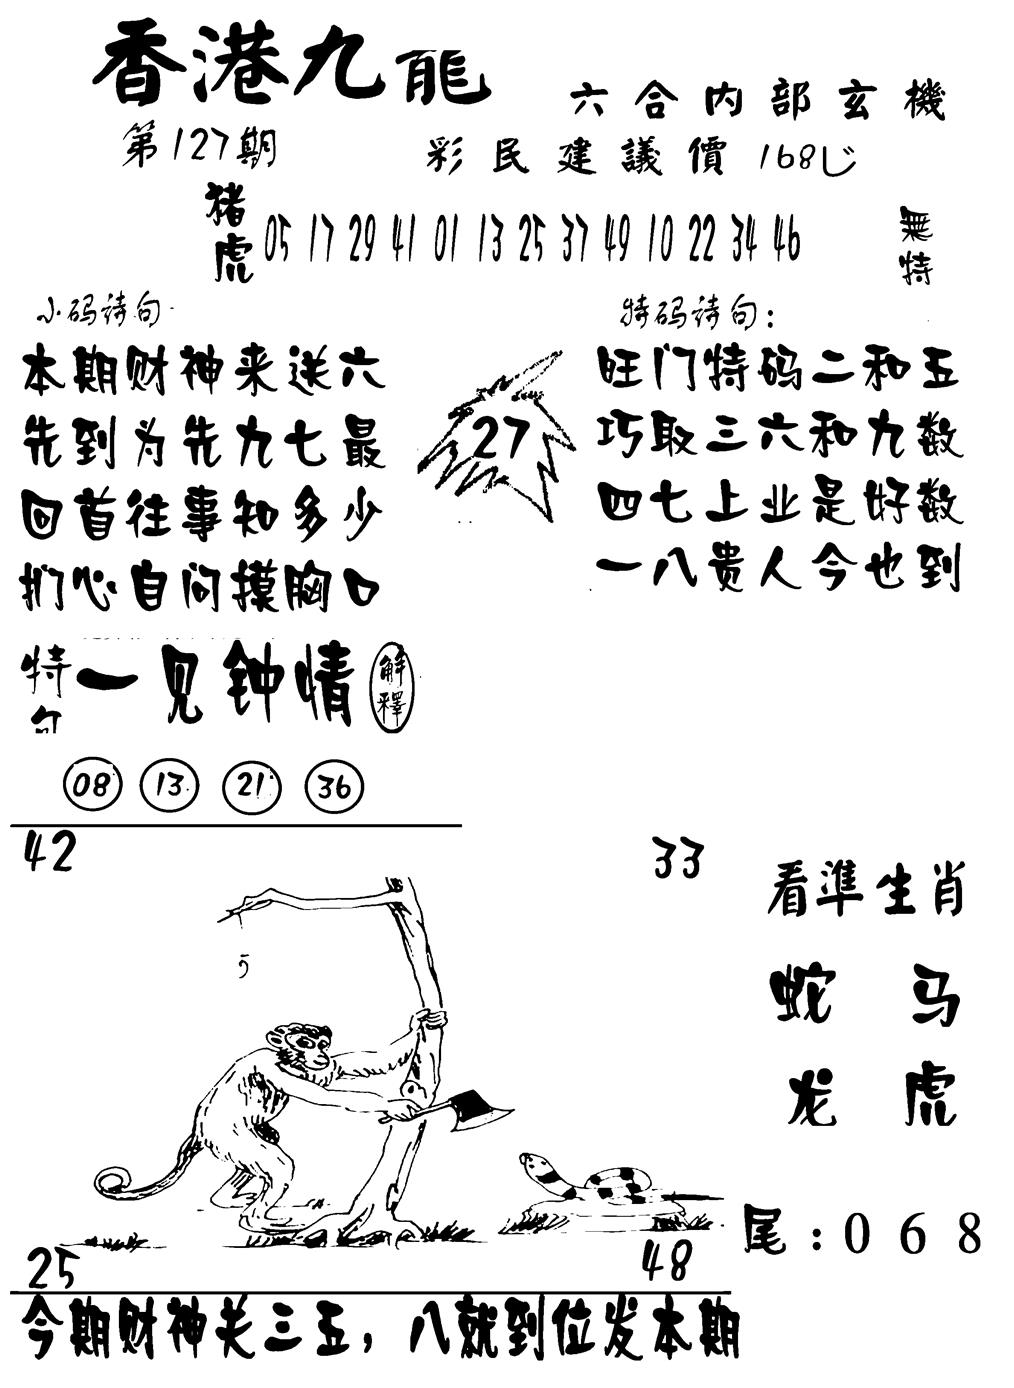 香港九能
六合内部玄機
第127期
彩民建議價168
猪虎 05 17 29 41 01 13 25 37 49 10 22 34 46 無特
小码诗句
本期财神来送六
先到为先九七最
回首往事知多少
扪心自问摸胸口
27
特码诗句：
旺门特码二和五
巧取三六和九数
四七上业是好数
一八贵人今也到
特句 一见钟情 解釋
08 13 21 36
42
33
看準生肖
蛇 马
龙 虎
尾：0 6 8
25
48
今期财神关三五，八就到位发本期